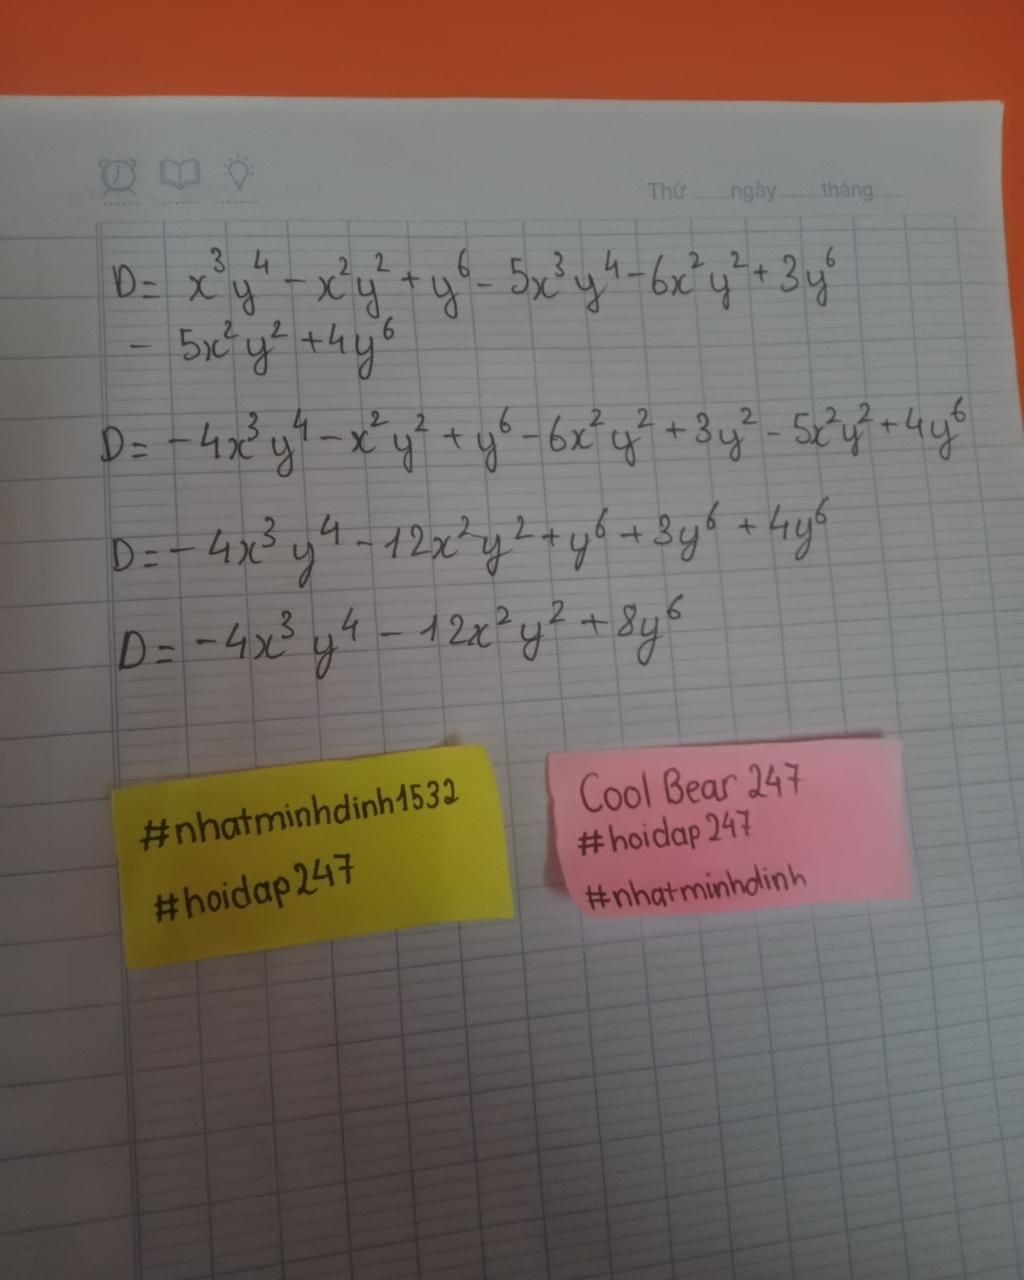 Thứ ......ngày ......tháng ......
D = x³y⁴ - x²y² + y⁶ - 5x³y⁴ - 6x²y² + 3y⁶
- 5x²y² + 4y⁶
D = -4x³y⁴ - x²y² + y⁶ - 6x²y² + 3y² - 5x²y² + 4y⁶
D = -4x³y⁴ - 12x²y² + y⁶ + 3y⁶ + 4y⁶
D = -4x³y⁴ - 12x²y² + 8y⁶
#nhatminhdinh1532
#hoidap247
Cool Bear 247
#hoidap247
#nhatminhdinh